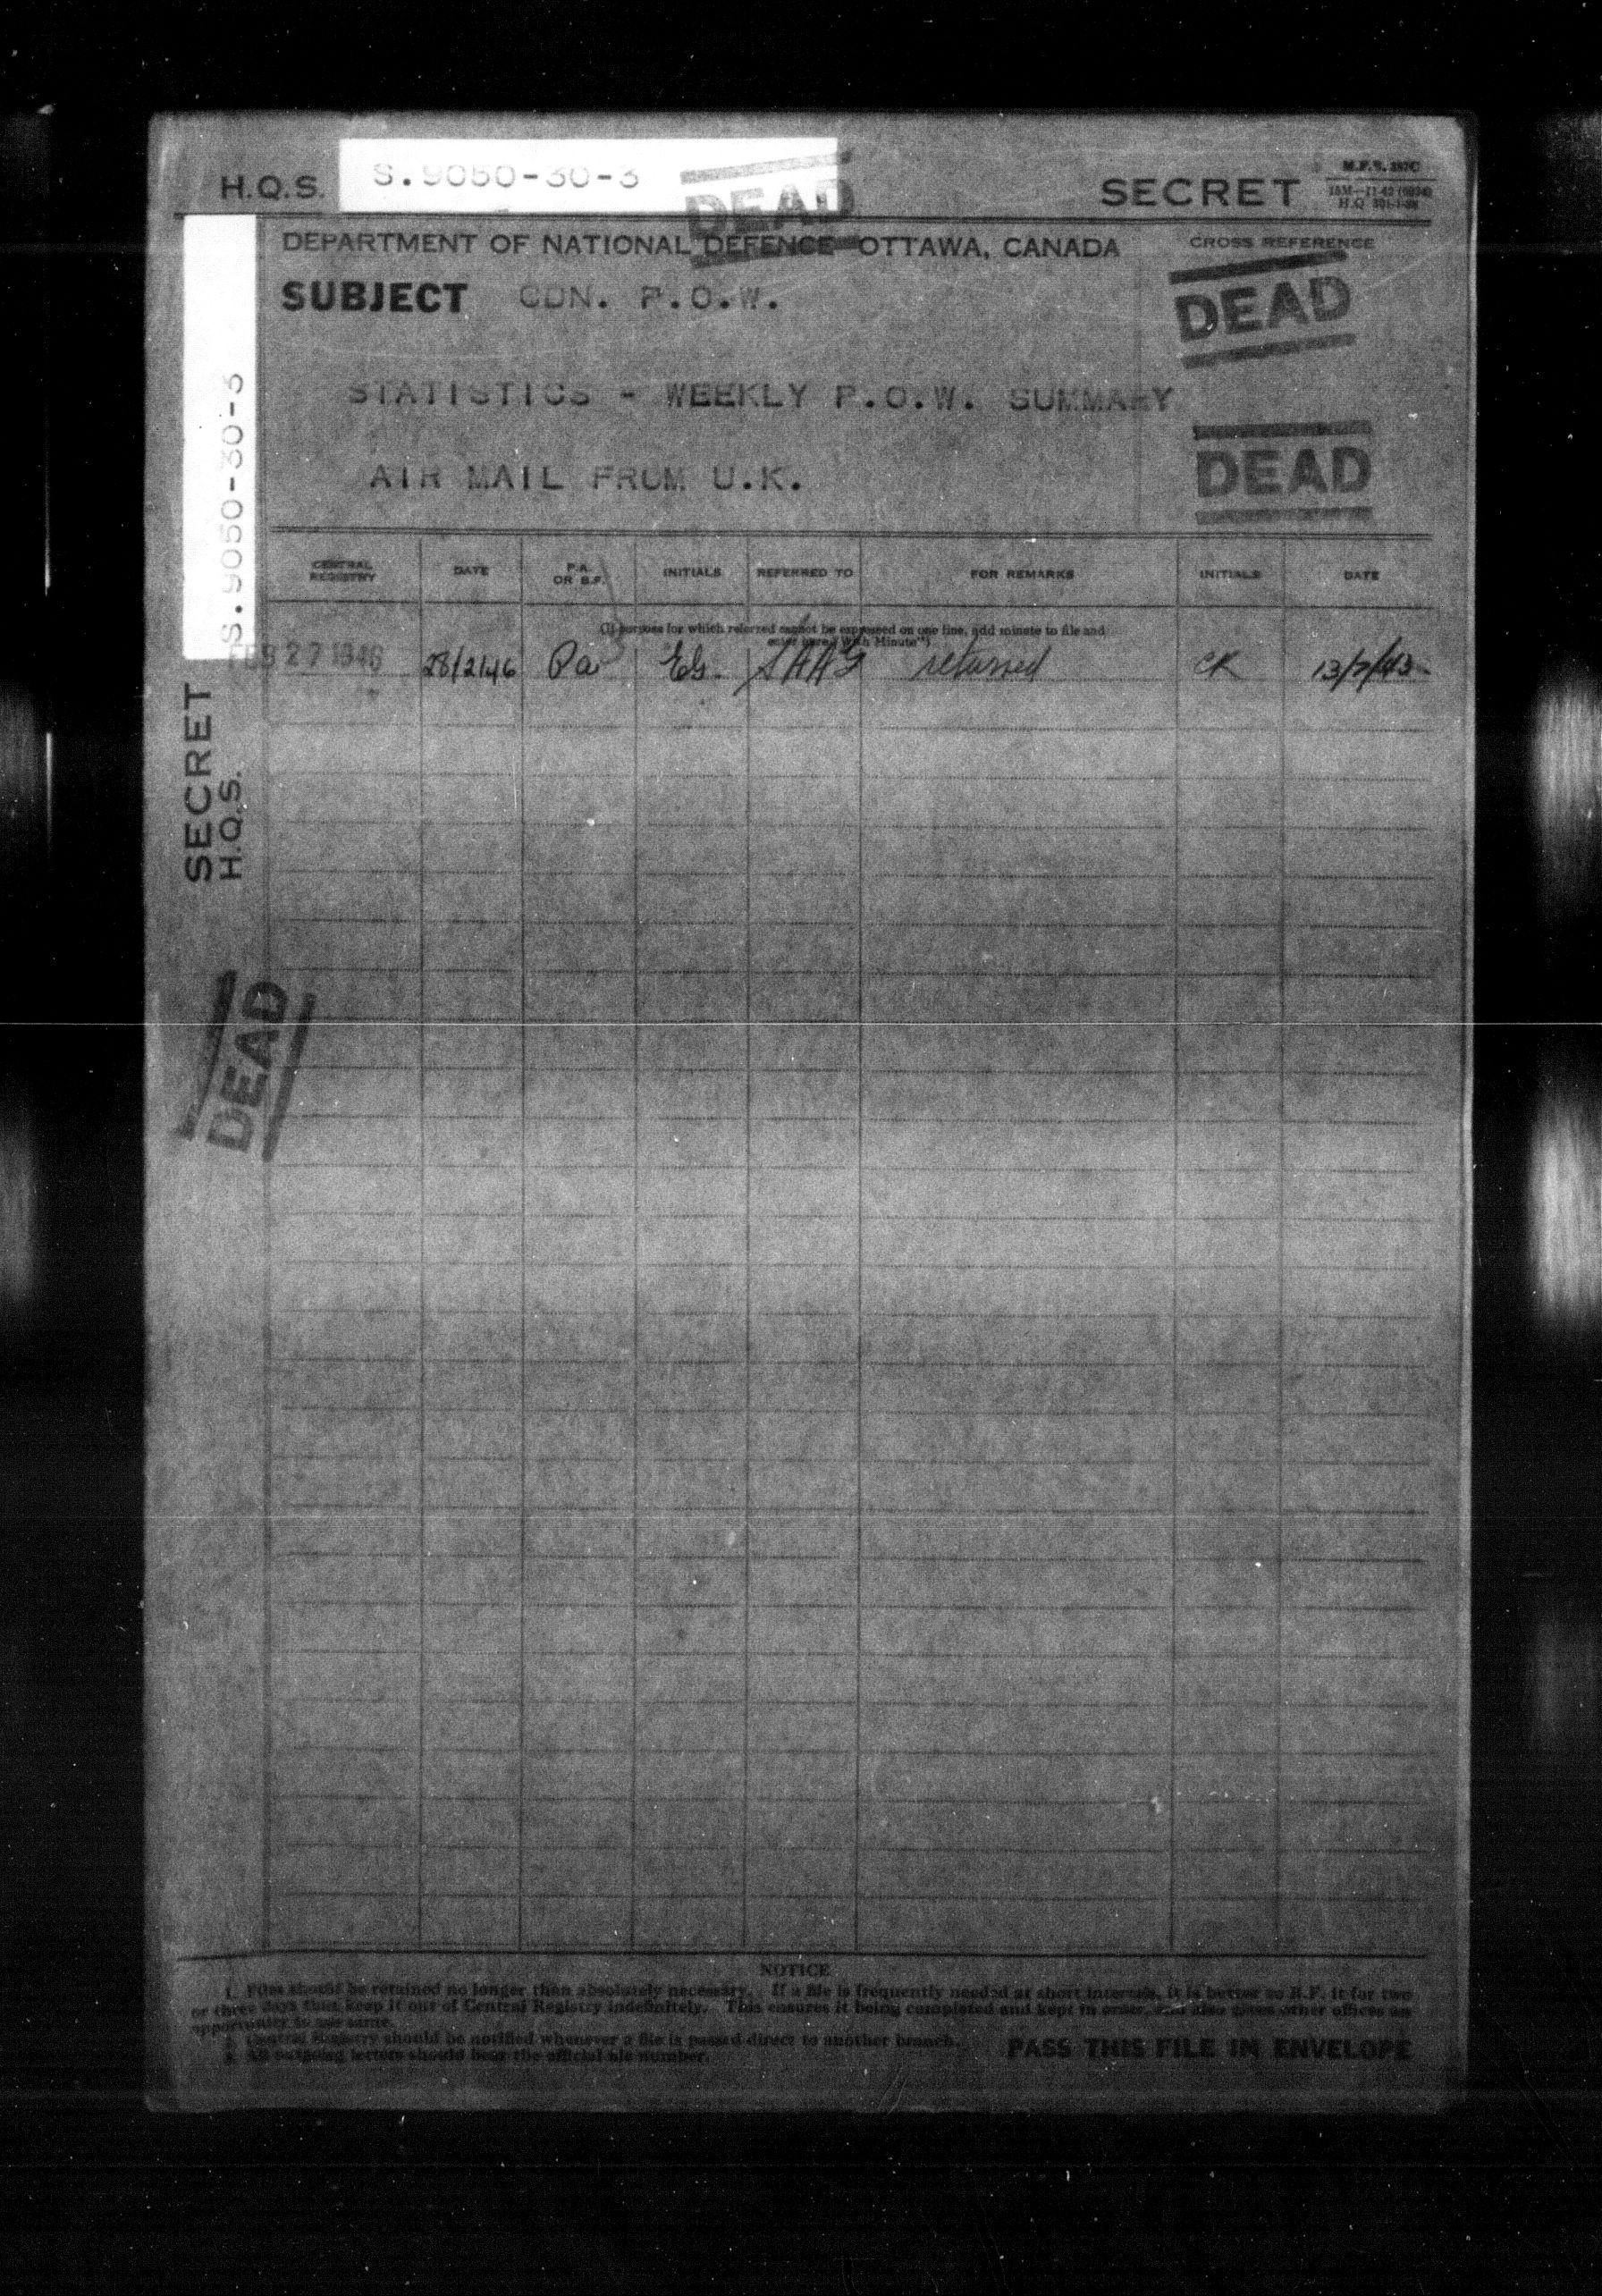 H.Q.S. S.9050-30-3
DEAD
SECRET
M.F.B. 287C
DEPARTMENT OF NATIONAL DEFENCE OTTAWA, CANADA
CROSS REFERENCE
SUBJECT CDN. P.O.W.
DEAD
STATISTICS - WEEKLY P.O.W. SUMMARY
AIR MAIL FROM U.K.
DEAD
S.9050-30-3
SECRET
H.Q.S.
DEAD
CENTRAL REGISTRY DATE P.A. OR B.F. INITIALS REFERRED TO FOR REMARKS INITIALS DATE
(If purpose for which referred cannot be expressed on one line, add minute to file and
enter here "With Minute")
FEB 27 1946 28/2/46 Pa EG. returned CK
NOTICE
1. Files should be retained no longer than absolutely necessary. If a file is frequently needed at short intervals, it is better to B.F. it for two
or three days than keep it out of Central Registry indefinitely. This ensures it being completed and kept in order, and also gives other offices an
opportunity to use same.
2. Central Registry should be notified whenever a file is passed direct to another branch.
3. All outgoing letters should bear the official file number.
PASS THIS FILE IN ENVELOPE